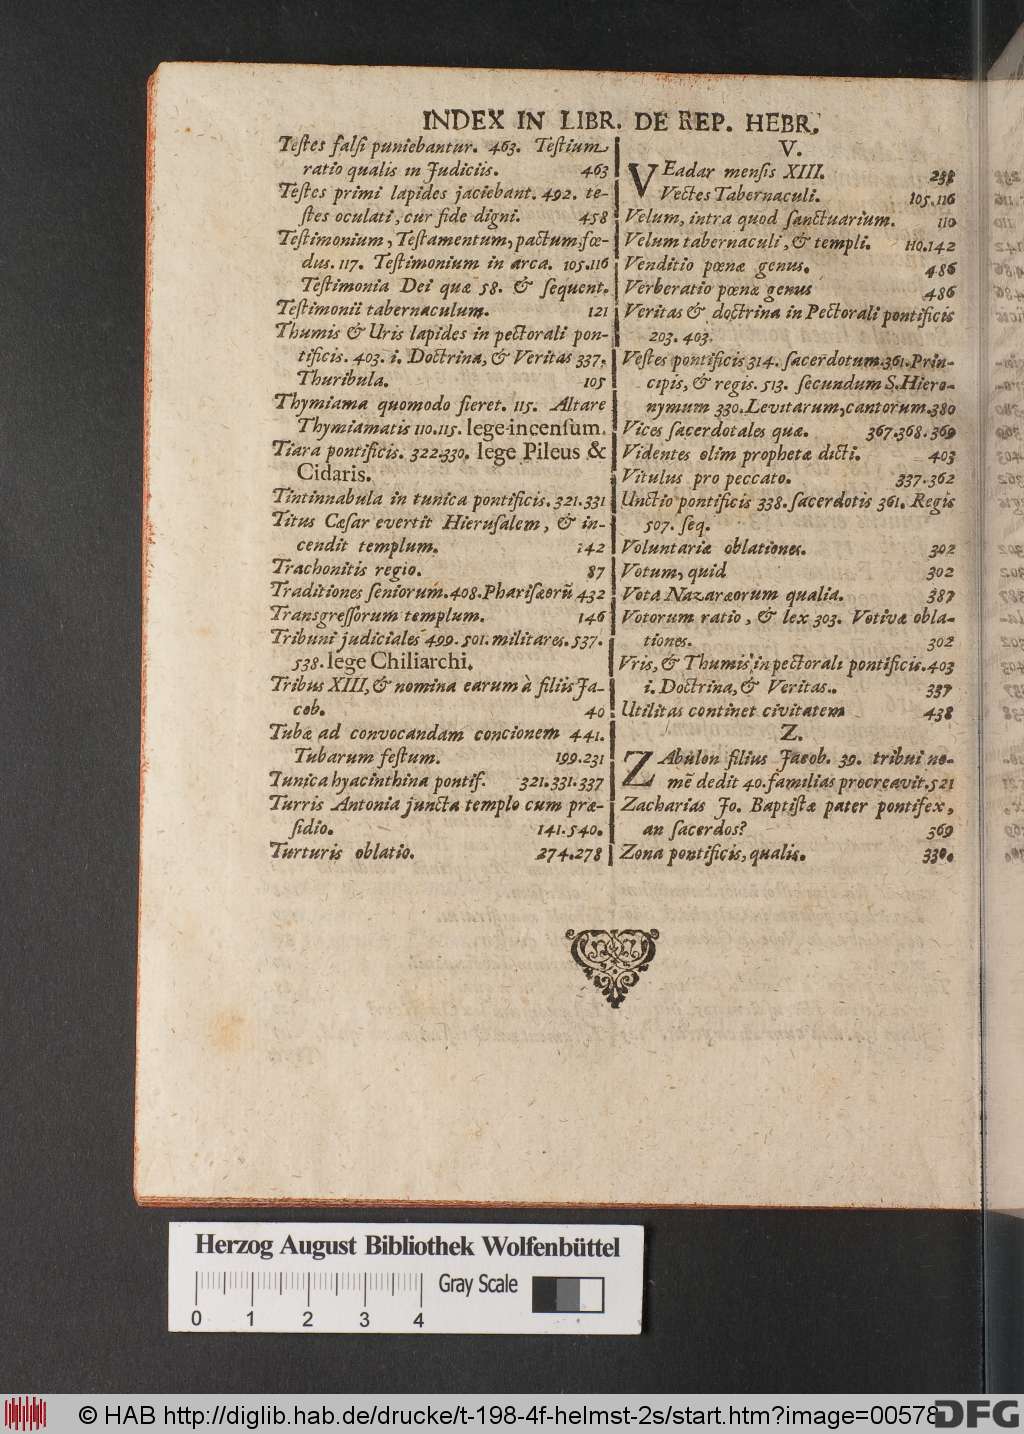 INDEX IN LIBR. DE REP. HEBR.
Teſtes falſi puniebantur. 463. Teſtium
ratio qualis in Judiciis. 463
Teſtes primi lapides jaciebant. 492. te-
ſtes oculati, cur fide digni. 458
Teſtimonium, Teſtamentum, pactum, fœ-
dus. 117. Teſtimonium in arca. 105.116
Teſtimonia Dei quæ 58. & ſequent.
Teſtimonii tabernaculum. 121
Thumis & Uris lapides in pectorali pon-
tificis. 403. i. Doctrina, & Veritas 337.
Thuribula. 105
Thymiama quomodo fieret. 115. Altare
Thymiamatis 110.115. lege incenſum.
Tiara pontificis. 322.330. lege Pileus &
Cidaris.
Tintinnabula in tunica pontificis. 321.331
Titus Cæſar evertit Hieruſalem, & in-
cendit templum. 142
Trachonitis regio. 87
Traditiones ſeniorum. 408. Phariſæorũ 432
Transgreſſorum templum. 146
Tribuni judiciales 499. 501. militares. 537.
538. lege Chiliarchi.
Tribus XIII, & nomina earum à filiis Ja-
cob. 40
Tubæ ad convocandam concionem 441.
Tubarum feſtum. 199.231
Tunica hyacinthina pontif. 321.331.337
Turris Antonia juncta templo cum præ-
ſidio. 141.540.
Turturis oblatio. 274.278
V.
VEadar menſis XIII. 238
Vectes Tabernaculi. 105.116
Velum, intra quod ſanctuarium. 110
Velum tabernaculi, & templi. 110.142
Venditio pœnæ genus. 486
Verberatio pœnæ genus 486
Veritas & doctrina in Pectorali pontificis
203. 403.
Veſtes pontificis 314. ſacerdotum. 361. Prin-
cipis, & regis. 513. ſecundum S. Hiero-
nymum 330. Levitarum, cantorum. 380
Vices ſacerdotales quæ. 367.368.369
Videntes olim prophetæ dicti. 403
Vitulus pro peccato. 337.362
Unctio pontificis 338. ſacerdotis 361. Regis
507. ſeq.
Voluntariæ oblationes. 302
Votum, quid 302
Vota Nazaræorum qualia. 387
Votorum ratio, & lex 303. Votivæ obla-
tiones. 302
Vris, & Thumis in pectorali pontificis. 403
i. Doctrina, & Veritas. 337
Utilitas continet civitatem 438
Z.
ZAbulon filius Jacob. 39. tribui no-
mẽ dedit 40. familias procreavit. 521
Zacharias Jo. Baptiſtæ pater pontifex,
an ſacerdos? 369
Zona pontificis, qualis. 330.
Herzog August Bibliothek Wolfenbüttel
Gray Scale
0 1 2 3 4
© HAB http://diglib.hab.de/drucke/t-198-4f-helmst-2s/start.htm?image=00578
DFG